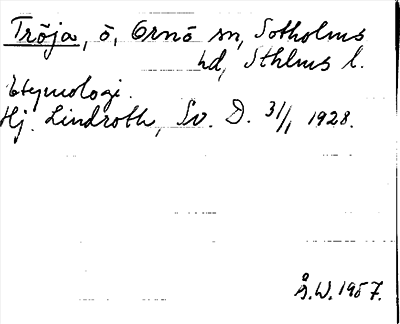 Tröja, ö, Ornö sn, Sotholms
hd, Sthlms l.
Etymologi.
Hj. Lindroth, Sv. D. 31/1 1928.
Å.W. 1957.